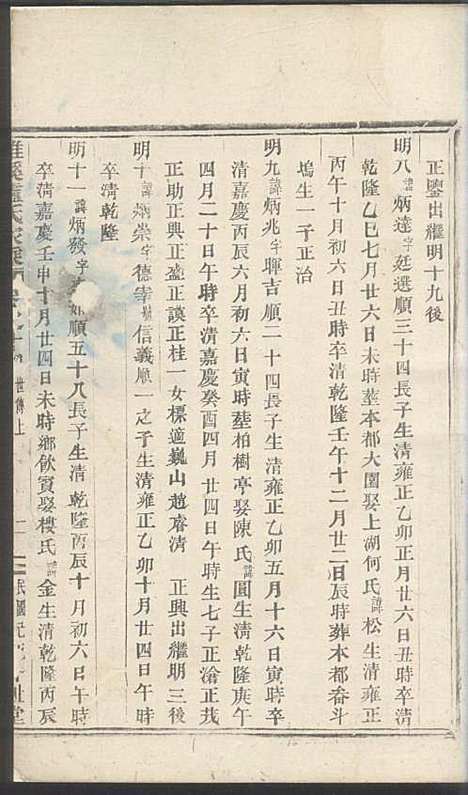 正鑒出繼明十九後
明八諱炳達字廷選順三十四長子生清雍正乙卯正月廿六日丑時卒清
乾隆乙巳七月廿六日未時葬本都大園娶上湖何氏諱松生清雍正
丙午十月初六日丑時卒清乾隆壬午十二月廿二日辰時葬本都畚斗
塢生一子正治
明九諱炳兆字暉吉順二十四長子生清雍正乙卯五月十六日寅時卒
清嘉慶丙辰六月初六日寅時塟柏樹亭娶陳氏諱圓生清乾隆庚午
四月二十日午時卒清嘉慶癸酉四月廿四日午時生七子正滄正茂
正助正興正盛正謨正桂一女標適巍山趙睿清 正興出繼明三後
明十諱炳崇字德峯號信義順一之子生清雍正乙卯十月廿四日午時
卒清乾隆
明十一諱炳發字 順五十八長子生清乾隆丙辰十月初六日午時
卒清嘉慶壬申十月廿四日未時鄉飲賓娶樓氏諱金生清乾隆丙辰
世傳上 二 民國 堂